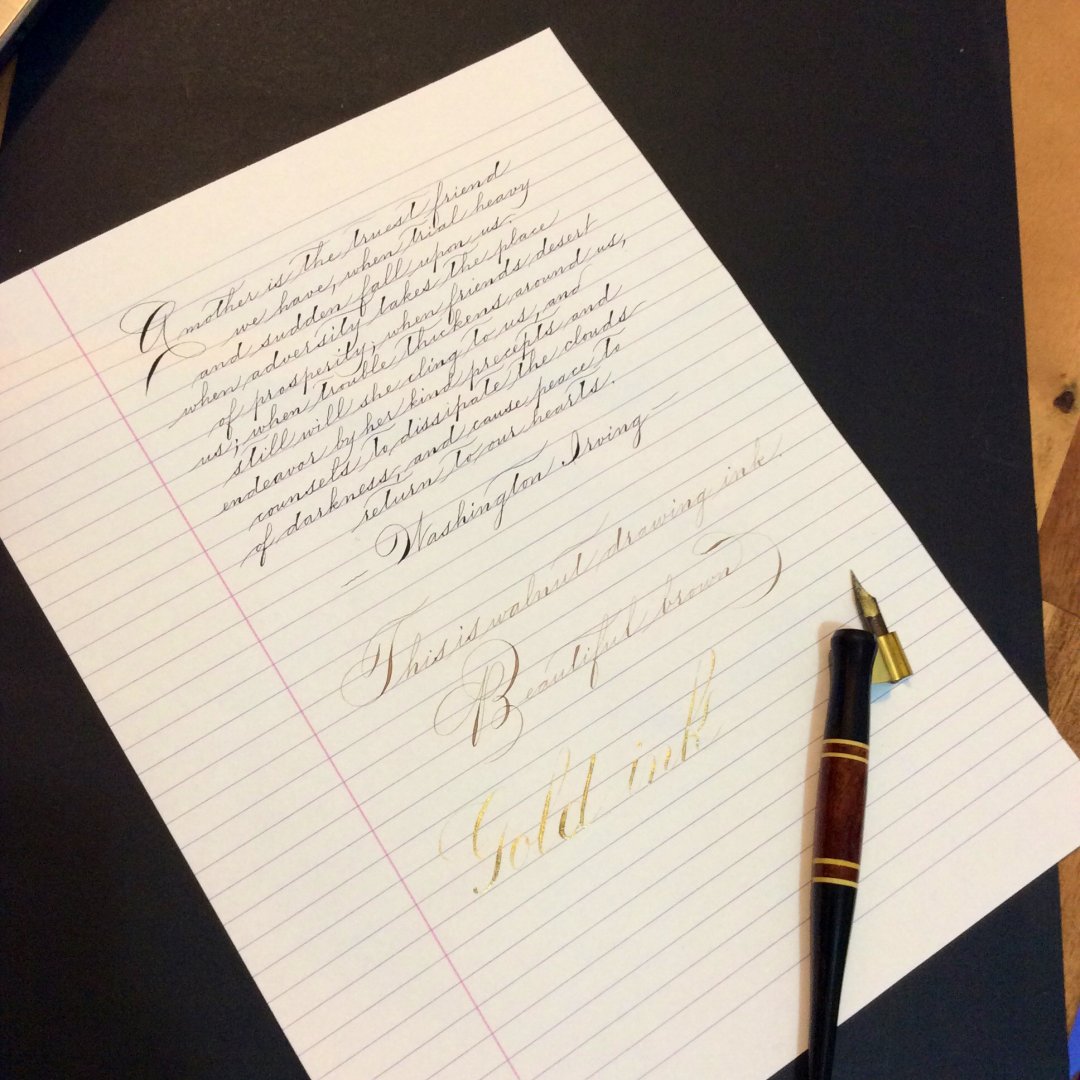 A mother is the truest friend
we have, when trial heavy
and sudden fall upon us.
when adversity takes the place
of prosperity; when friends desert
us; when trouble thickens around us,
still will she cling to us, and
endeavor by her kind precepts and
counsels to dissipate the clouds
of darkness, and cause peace to
return to our hearts.
- Washington Irving -
This is walnut drawing ink.
Beautiful brown
Gold ink